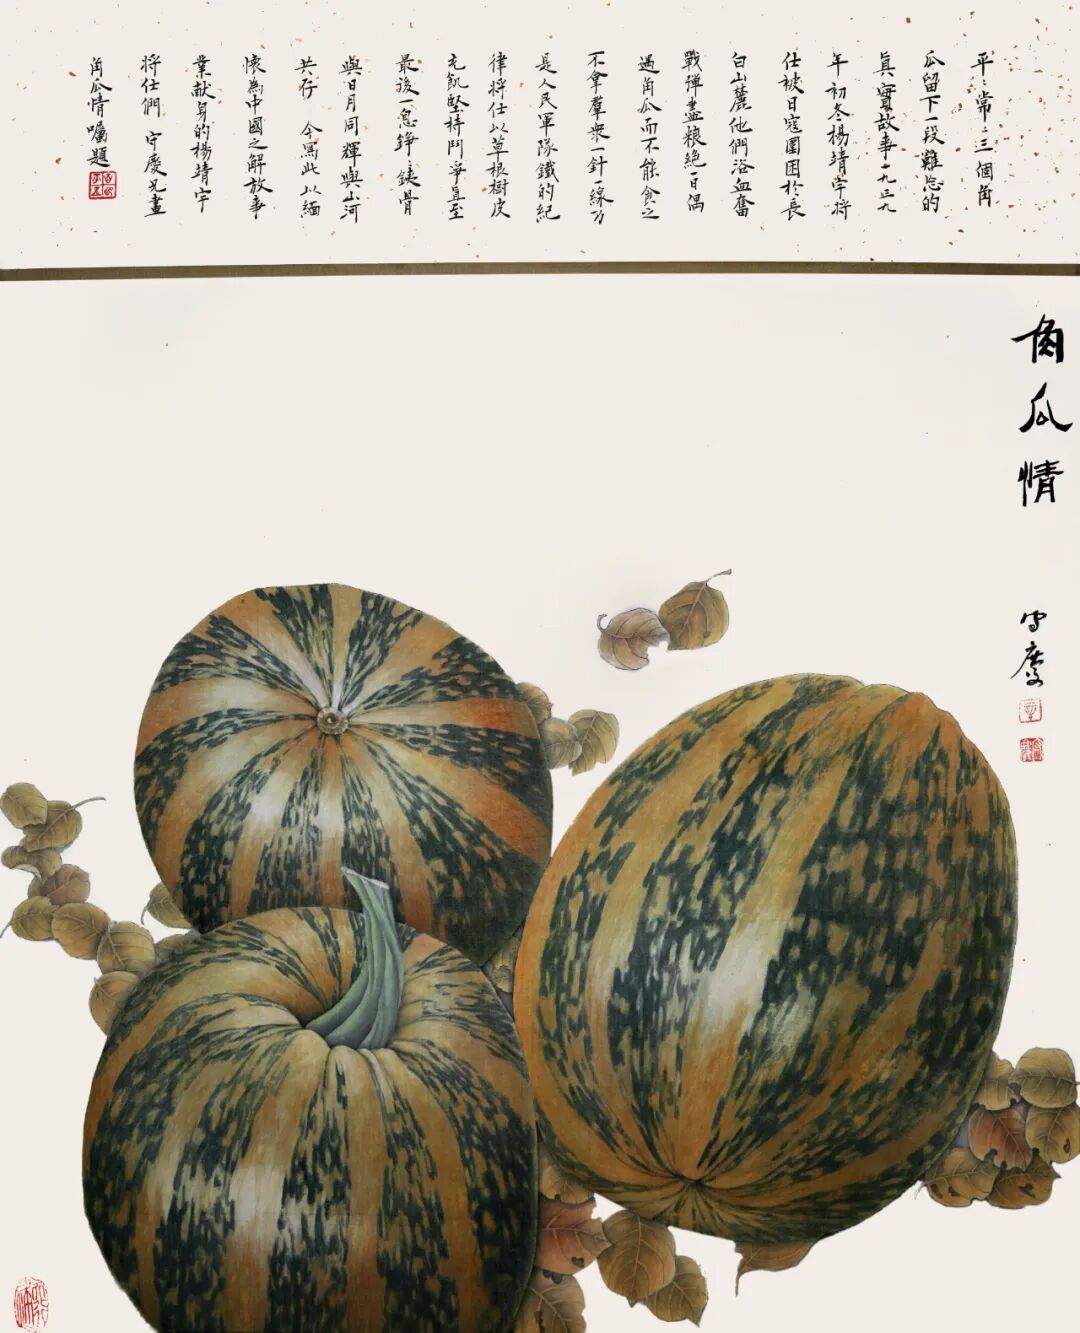 平﹕常﹕三個角
瓜留下一段難忘的
真實故事一九三九
年初冬楊靖宇將
仕被日寇圍困於長
白山麓他們浴血奮
戰彈盡粮絕一日偶
遇角瓜而不能食之
不拿羣衆一針一線乃
是人民軍隊鐵的紀
律將仕以草根樹皮
充飢堅持鬥爭直至
最後一息錚﹕鐵骨
與日月同輝與山河
共存 今寫此以緬
懷為中國之解放事
業献身的楊靖宇
將仕們 守慶兄畫
角瓜情囑題
角瓜情
守慶